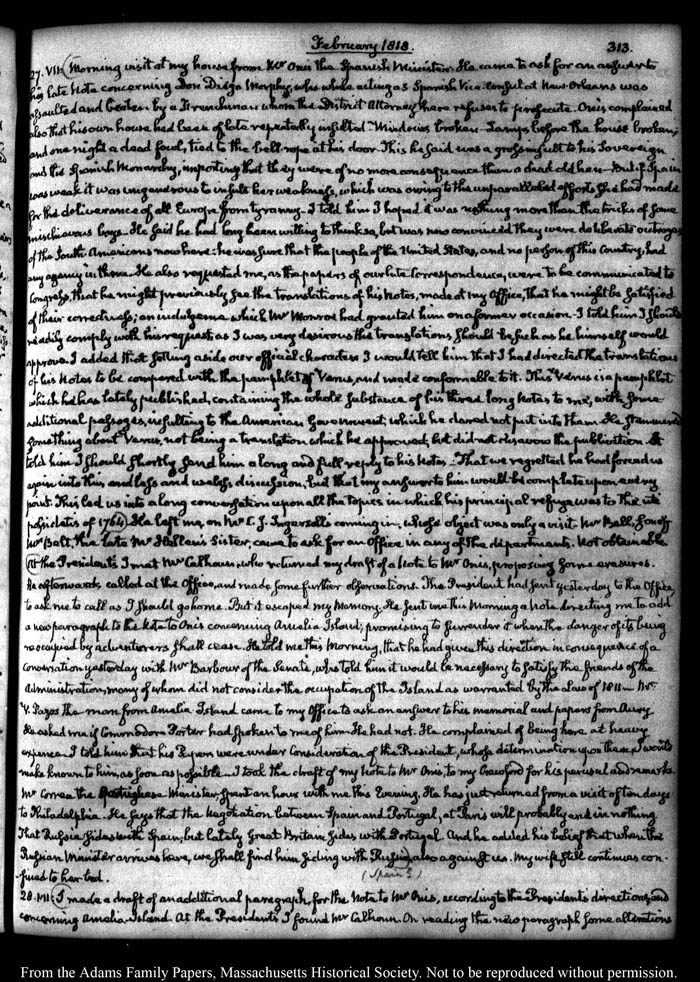 February 1818.
313.
27. VII: Morning visit at my house from Mr Onis the Spanish Minister. He came to ask for an answer to
his late Note concerning Don Diego Morphy, who while acting as Spanish Vice-Consul at New-Orleans was
assaulted and beaten by a Frenchman whom the District Attorney there refuses to prosecute. Onis complained
also that his own house had been of late repeatedly insulted—Windows broken—Lamps before the house broken;
and one night a dead fowl, tied to the bell-rope at his door. This he said was a gross insult to his Sovereign
and the Spanish Monarchy, importing that they were of no more consequence than a dead old hen—But if Spain
was weak it was ungenerous to insult her weakness, which was owing to the unparalleled efforts she had made
for the deliverance of all Europe from tyranny. I told him I hoped it was nothing more than the tricks of some
mischievous boys. He said he had long been willing to think so, but was now convinced they were deliberate outrages
of the South Americans now here: he was sure that the people of the United States, and no person of this Country, had
any agency in them. He also requested me, as the papers of our late Correspondence, were to be communicated to
Congress, that he might previously see the translations of his Notes, made at my Office, that he might be satisfied
of their correctness; an indulgence which Mr Monroe had granted him on a former occasion. I told him I should
readily comply with his request as I was very desirous the translations should be such as he himself would
approve. I added that setting aside our official characters I would tell him that I had directed the translations
of his Notes to be compared with the pamphlet of Verus, and made conformable to it. This Verus is a pamphlet
which he has lately published, containing the whole substance of his three long Notes to me, with some
additional passages, insulting to the American Government; which he dared not put into them. He stammered
something about Verus, not being a translation which he approved; but did not disavow the publication. I
told him I should shortly send him a long and full reply to his Notes—That we regretted he had forced us
again into this endless and useless discussion; but that my answer to him would be complete upon every
point. This led us into a long conversation upon all the topics in which his principal refuge was to the uti
possidetis of 1764. He left me, on Mr C. J. Ingersoll's coming in, whose object was only a visit. Mr Balt, son of
Mrs Balt, the late Mr Hellen's Sister, came to ask for an Office in any of the departments. Not obtainable
At the President's I met Mr Calhoun, who returned my draft of a Note to Mr Onis, proposing some erasures.
He afterwards called at the Office, and made some further observations. The President had sent yesterday to the Office
to ask me to call as I should go home. But it escaped my Memory. He sent me this Morning a note directing me to add
a new paragraph to the Note to Onis concerning Amelia Island; promising to surrender it when the danger of its being
reoccupied by adventurers shall cease. He told me this Morning, that he had given this direction in consequence of a
Conversation yesterday with Mr Barbour of the Senate, who told him it would be necessary to satisfy the friends of the
Administration, many of whom did not consider the occupation of the Island as warranted by the Law of 1811. Mr
V. Pazos the man from Amelia Island came to my Office to ask an answer to his memorial and papers from Aury
He asked me if Commodore Porter had spoken to me of him—He had not. He complained of being here at heavy
expence. I told him that his Papers were under Consideration of the President, whose determination upon them I would
make known to him, as soon as possible—I took the draft of my Note to Mr Onis, to Mr Crawford for his perusal and remarks.
Mr Correa the Portuguese Minister spent an hour with me this Evening. He has just returned from a visit of ten days
to Philadelphia. He says that the Negotiation between Spain and Portugal, at Paris will probably end in nothing
That Russia sides with Spain, but lately Great Britain sides with Portugal. And he added his belief that when the
Russian Minister arrives here, we shall find him siding with Russia, also against us. My wife still continues con-
fined to her bed.
(Spain?)
28. VII: I made a draft of an additional paragraph, for the Note to Mr Onis, according to the President's directions, and
concerning Amelia Island. At the President's I found Mr Calhoun. On reading the new paragraph some alterations
From the Adams Family Papers, Massachusetts Historical Society. Not to be reproduced without permission.